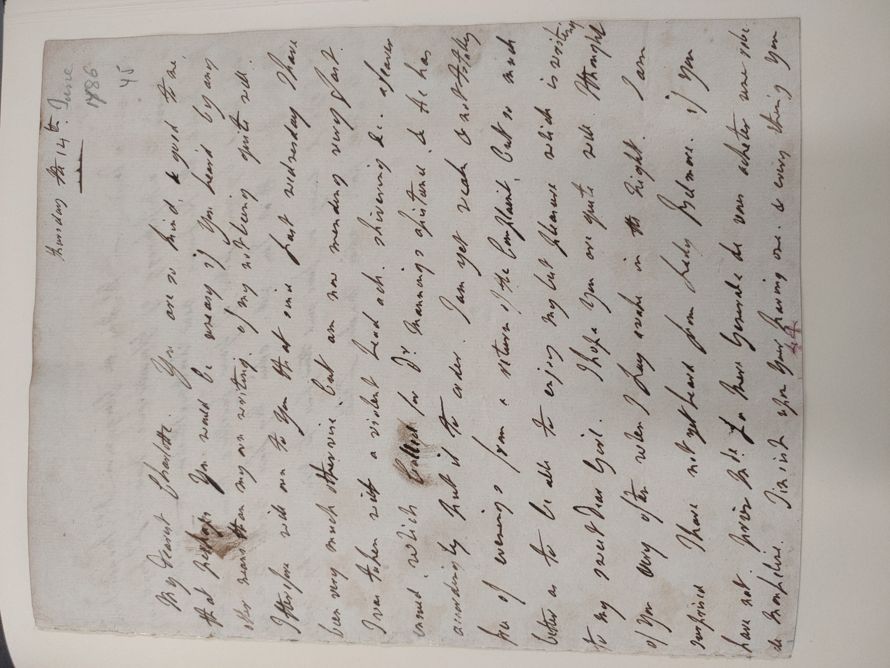 thursday th 14th June
1786
45
My dearest Charlotte. You are so kind, & good to me.
that perhaps You would be uneasy if You heard by any
other means than my own writing. of my not being quite well.
I therefore will own to You that since Last wednesday I have
been very much otherwise. but am now mending very fast.
I was taken with a violent head ach. shivering &c. a fever
ensued. which Called for Dr Mannings assistance. & He has
accordingly put it to order. I am yet weak & not totally
free of evenings from a return of the Complaint, but so much
better as to be able to enjoy my best pleasure which is writing
to my sweet Dear Girl. I hope You are quite well. I thought
of You very often when I lay awake in the Night. I am
surprised I have not yet heard from Lady Belmore. if You
have not. given Mde La Mare Generale de vous acheter une robe
de mousseline. I insist upon Your having one. & every thing You